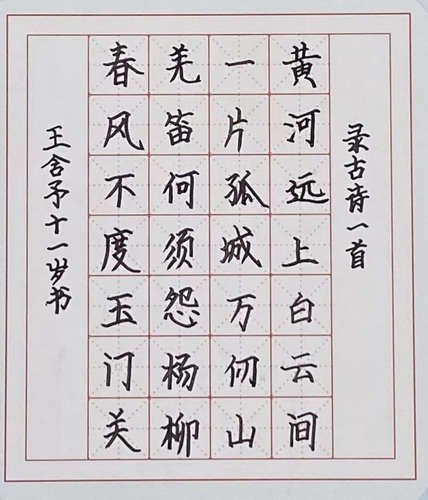 录古诗一首
黄河远上白云间
一片孤城万仞山
羌笛何须怨杨柳
春风不度玉门关
王含予十一岁书